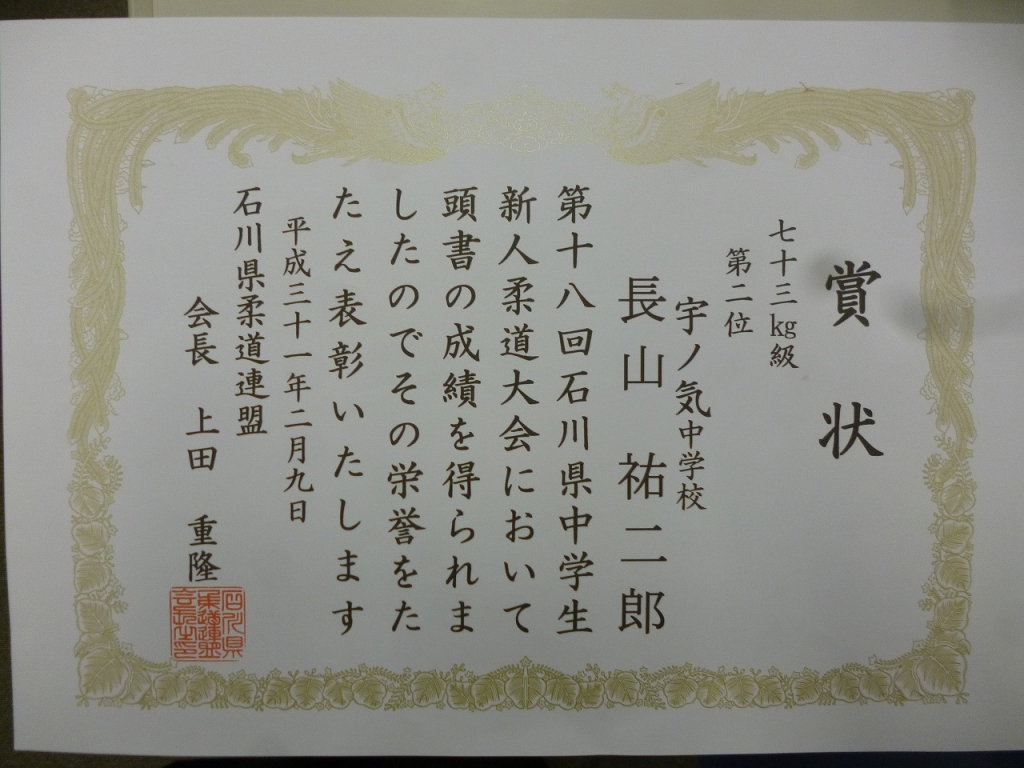 賞状
七十三kg級
第二位
宇ノ気中学校
長山 祐二郎
第十八回石川県中学生
新人柔道大会において
頭書の成績を得られま
したのでその栄誉をた
たえ表彰いたします
平成三十一年二月九日
石川県柔道連盟
会長 上田 重隆
石川県
柔道連盟
会長之印